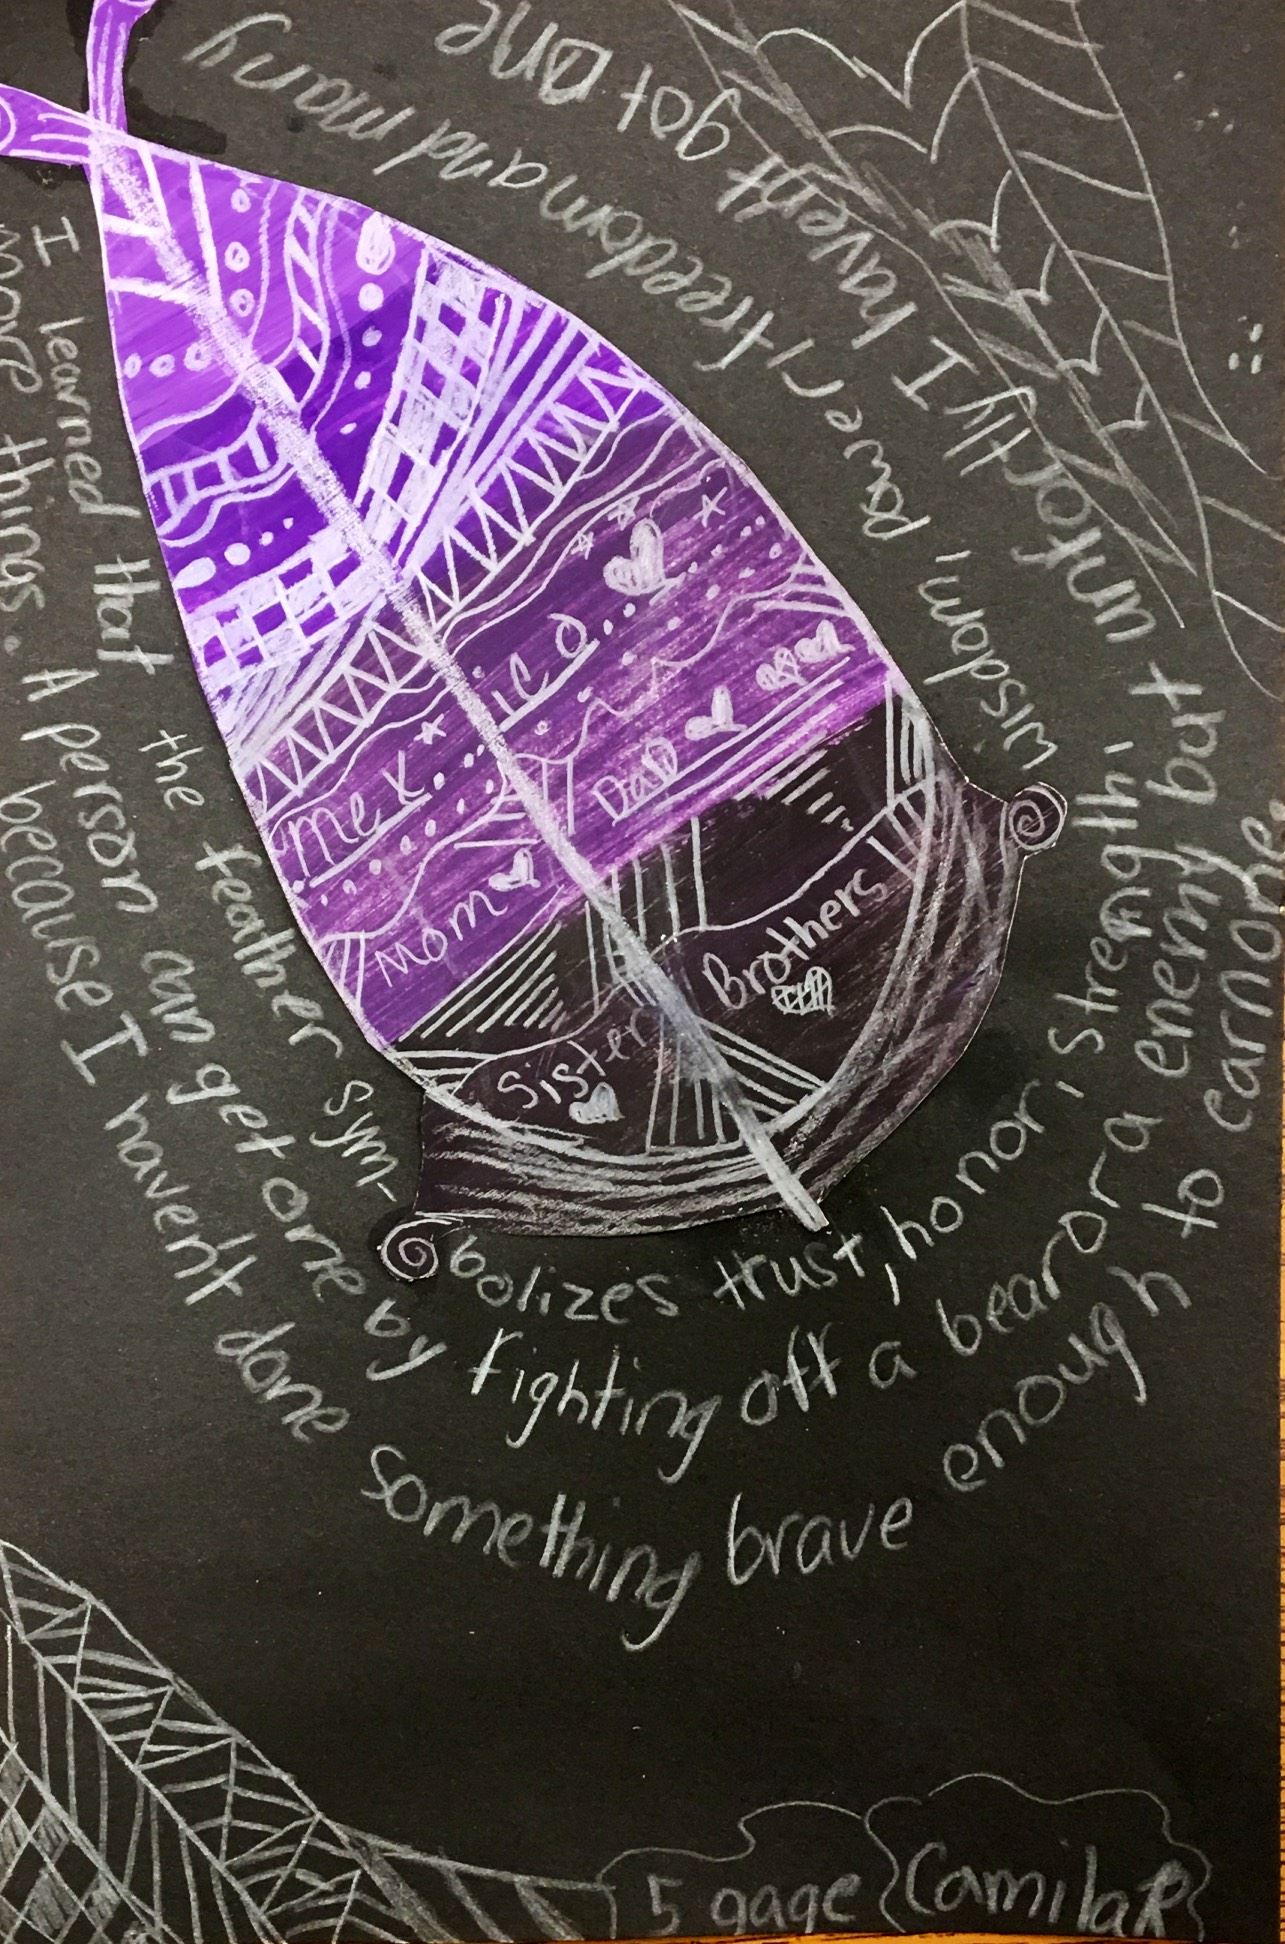 I learned that the feather sym-bolizes trust, honor, strength, wisdom, power, freedom and many
more things. A person can get one by fighting off a bear or a enemy but unfortly I havent got one
because I havent done something brave enough to earn one
Mexico
Mom Dad
Sister Brothers
5 gage Camila R